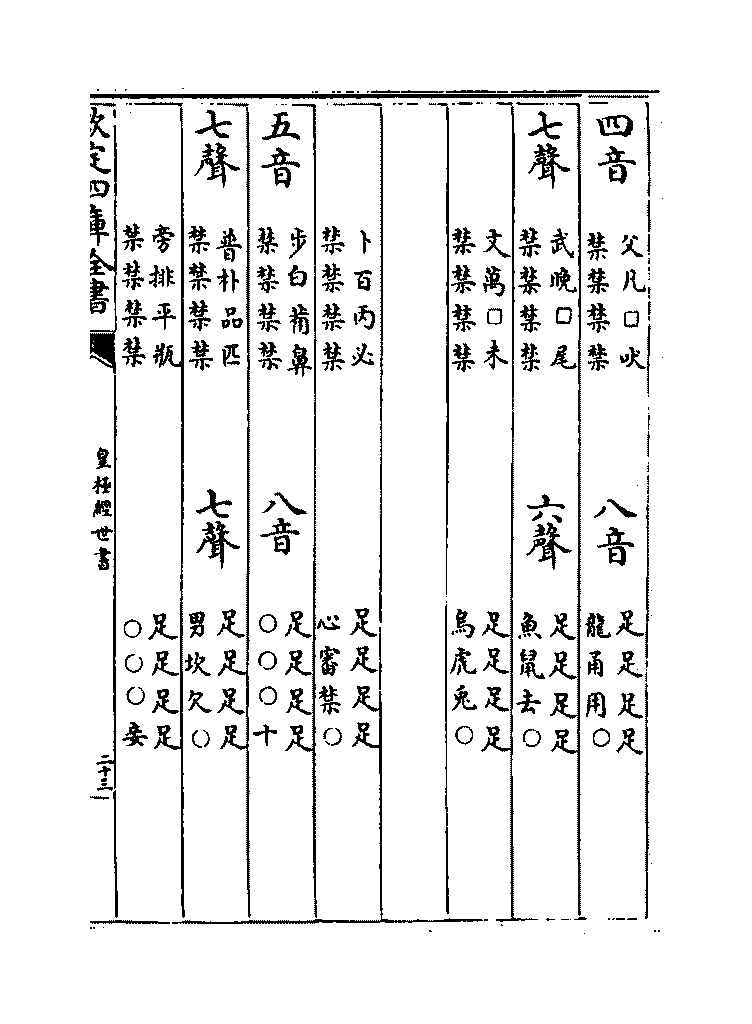 四音
父凡□吠
禁禁禁禁
八音
足足足足
龍甬用○
七聲
武晚□尾
禁禁禁禁
六聲
足足足足
魚鼠去○
文萬□未
禁禁禁禁
足足足足
烏虎兎○
卜百丙必
禁禁禁禁
足足足足
心審禁○
五音
步白葡鼻
禁禁禁禁
八音
足足足足
○○○十
七聲
普朴品匹
禁禁禁禁
七聲
足足足足
男坎欠○
旁排平瓶
禁禁禁禁
足足足足
○○○妾
欽定四庫全書
皇極經世書
二十三